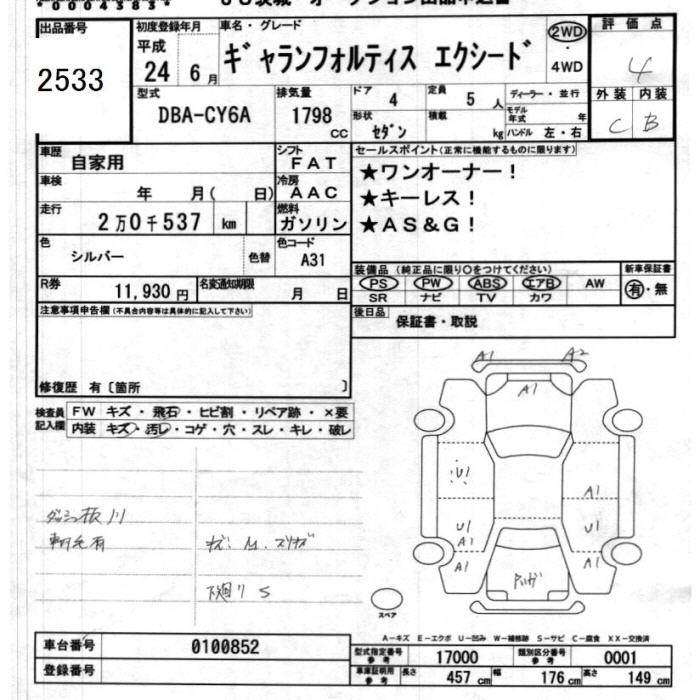 *00043834*
出品番号
2533
初度登録年月 車名・グレード
平成
24 6 月 ギャランフォルティス エクシード
2WD
・
4WD
評価点
4
外装 内装
C B
型式 排気量 ドア 4 定員 5 人 ディーラー・並行
DBA-CY6A 1798 CC 形状 セダン 積載 kg モデル年式 年
ハンドル 左・右
車歴 自家用 シフト FAT
車検 年 月( 日) 冷房 AAC
走行 2万0千537 km 燃料 ガソリン
色 シルバー 色替 色コード A31
R券 11,930円 名変通知期限 月 日
セールスポイント(正常に機能するものに限ります)
★ワンオーナー!
★キーレス!
★AS&G!
装備品 (純正品に限り○をつけてください) 新車保証書
PS PW ABS エアB AW 有・無
SR ナビ TV カワ
後日品 保証書・取説
注意事項申告欄(不具合内容等は具体的に記入して下さい)
修復歴 有〔箇所 〕
検査員記入欄 FW キズ・飛石・ヒビ割・リペア跡・×要
内装 キズ・汚レ・コゲ・穴・スレ・キレ・破レ
下廻り S
A1 A2
A1
A1
U1 U1
A1
A1 A1
スペア
A-キズ E-エクボ U-凹み W-補修跡 S-サビ C-腐食 XX-交換済
車台番号 0100852
登録番号
型式指定番号 参考 17000 類別区分番号 参考 0001
車庫証明用 参考 長さ 457 cm 幅 176 cm 高さ 149 cm